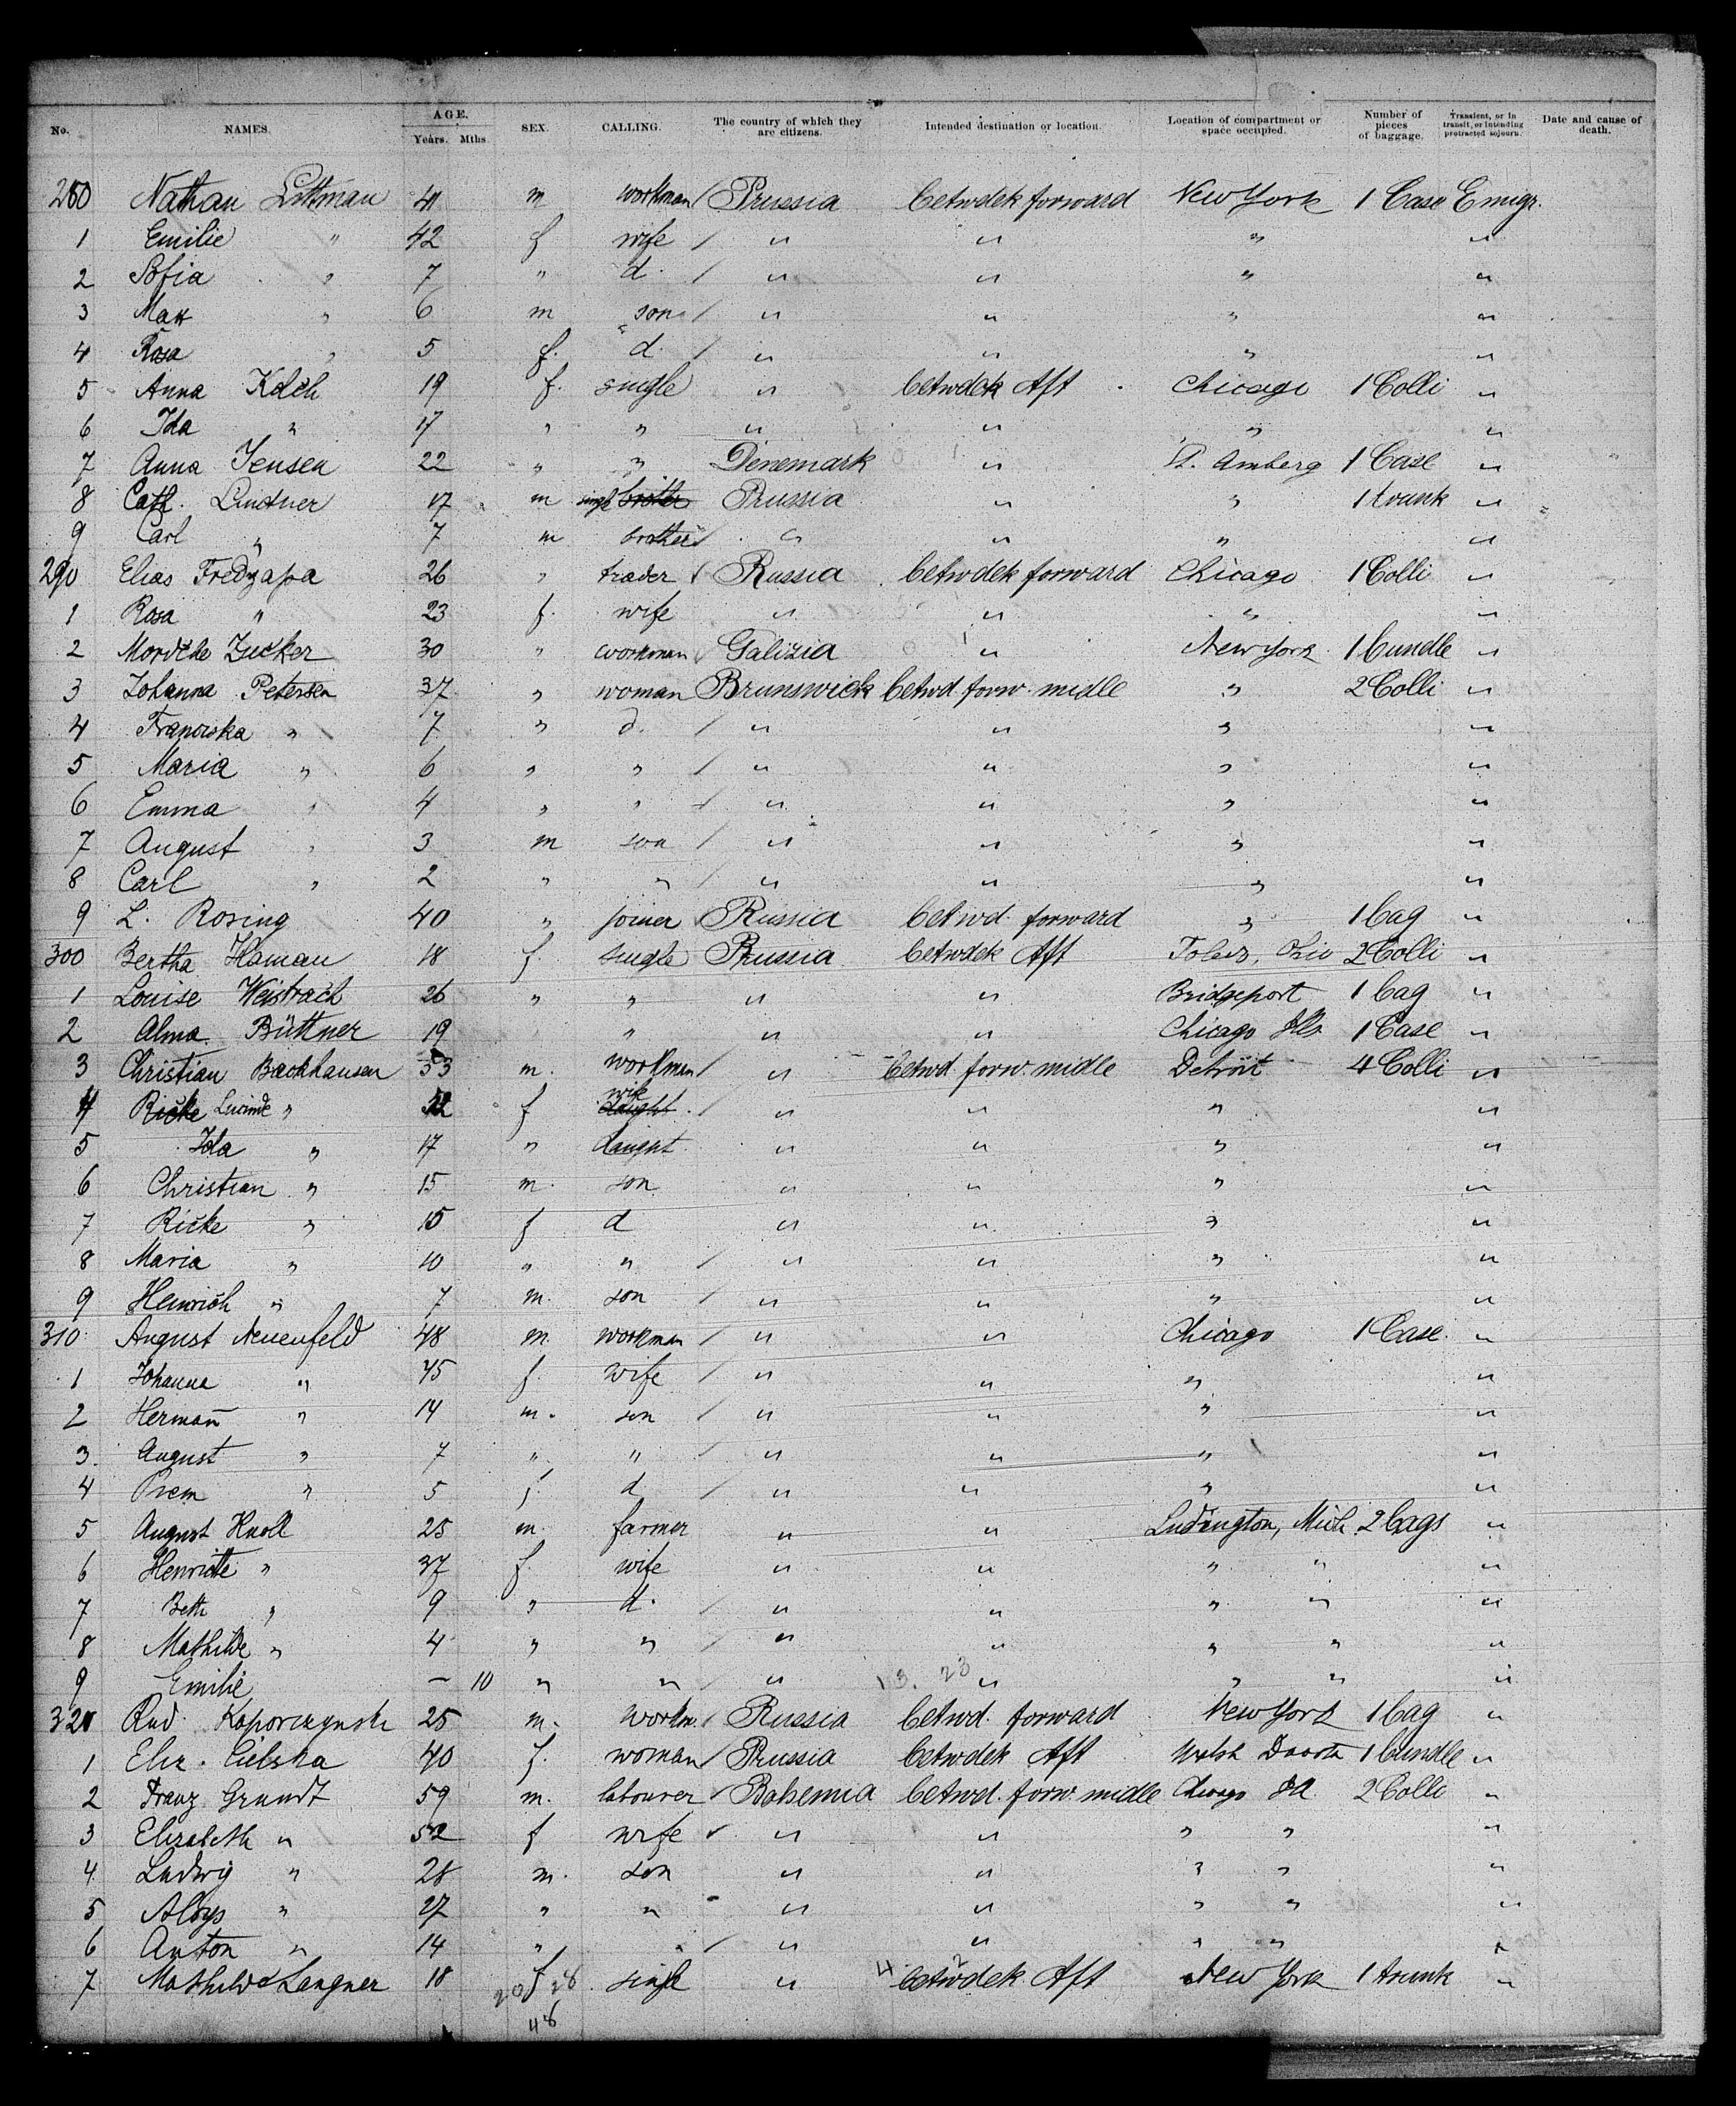 No. NAMES. AGE. Years. Mths. SEX. CALLING. The country of which they are citizens. Intended destination or location. Location of compartment or space occupied. Number of pieces of baggage. Transient, or in transit, or intending protracted sojourn. Date and cause of death.
280 Nathan Littman 41 m workman Prussia betwdek forward New York 1 Case Emigr.
1 Emilie " 42 f wife " " " "
2 Sofia " 7 " d. " " " "
3 Max " 6 m son " " " "
4 Rosa " 5 f. d. " " " "
5 Anna Kdch 19 f. single " betwdek Aft Chicago 1 Colli "
6 Ida " 17 " " " " " "
7 Anna Jensen 22 " " Denemark " Amberg 1 Case "
8 Cath. Lindner 17 m singl brother Prussia " " 1 trunk "
9 Carl " 7 m brother " " " "
290 Elias 26 " trader Russia betwdek forward Chicago 1 Colli "
1 Rosa " 23 f. wife " " " "
2 Mordche Zucker 30 " workman Galizia " New York 1 bundle "
3 Johanna Petersen 37 " woman Brunswick betwd. forw. midle " 2 Colli "
4 Franciska " 7 " d. " " " "
5 Maria " 6 " " " " " "
6 Emma " 4 " " " " " "
7 August " 3 m son " " " "
8 Carl " 2 " " " " " "
9 L. Rosing 40 " joiner Russia betwd. forward " 1 bag "
300 Bertha Haman 18 f. single Prussia betwdek Aft Ohio 2 Colli "
1 Louise 26 " " " " Bridgeport 1 bag "
2 Alma Büttner 19 " " " Chicago Ills 1 Case "
3 Christian Backhausen 53 m. workman " betwd. forw. midle Detroit 4 Colli "
4 Ricke Lucinde " 52 f wife daught. " " " "
5 Ida " 17 " daught " " " "
6 Christian " 15 m. son " " " "
7 Ricke " 15 f d " " " "
8 Maria " 10 " " " " " "
9 Heinrich " 7 m. son " " " "
310 August Neuenfeld 48 m. workman " " Chicago 1 Case "
1 Johanna " 45 f. wife " " " "
2 Herman " 14 m. son " " " "
3. August " 7 " " " " " "
4 " 5 f. d " " " "
5 August Knoll 25 m. farmer " " Ludington, Mich 2 bags "
6 Henriette " 37 f. wife " " " " "
7 Beth " 9 " d. " " " " "
8 Mathilde " 4 " " " " " " "
9 Emilie – 10 " " " 13. 23 " " " "
320 Rud. 25 m. workm. Russia betwd. forward New York 1 bag "
1 Elis. 40 f. woman Prussia betwdek Aft 1 bundle "
2 Franz Grundt 59 m. labourer Bohemia betwd. forw. midle Chicago Ill 2 Colli "
3 Elisabeth " 52 f wife " " " " "
4 Ludwig " 28 m. son " " " " "
5 Aloys " 27 " " " " " " "
6 Anton " 14 " " " " " " "
7 Mathilde Langner 18 f single " betwdek Aft New York 1 trunk "
20 28
48